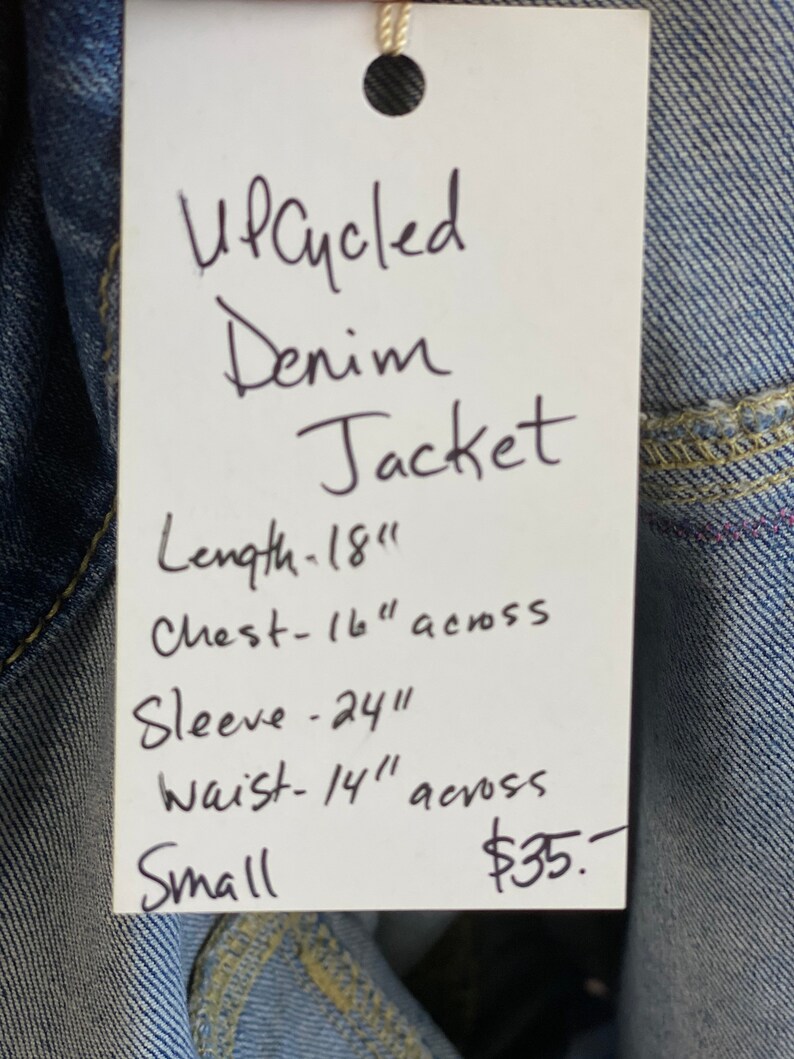 UPCycled
Denim
Jacket
Length-18"
Chest-16" across
Sleeve-24"
Waist-14" across
Small $35.-